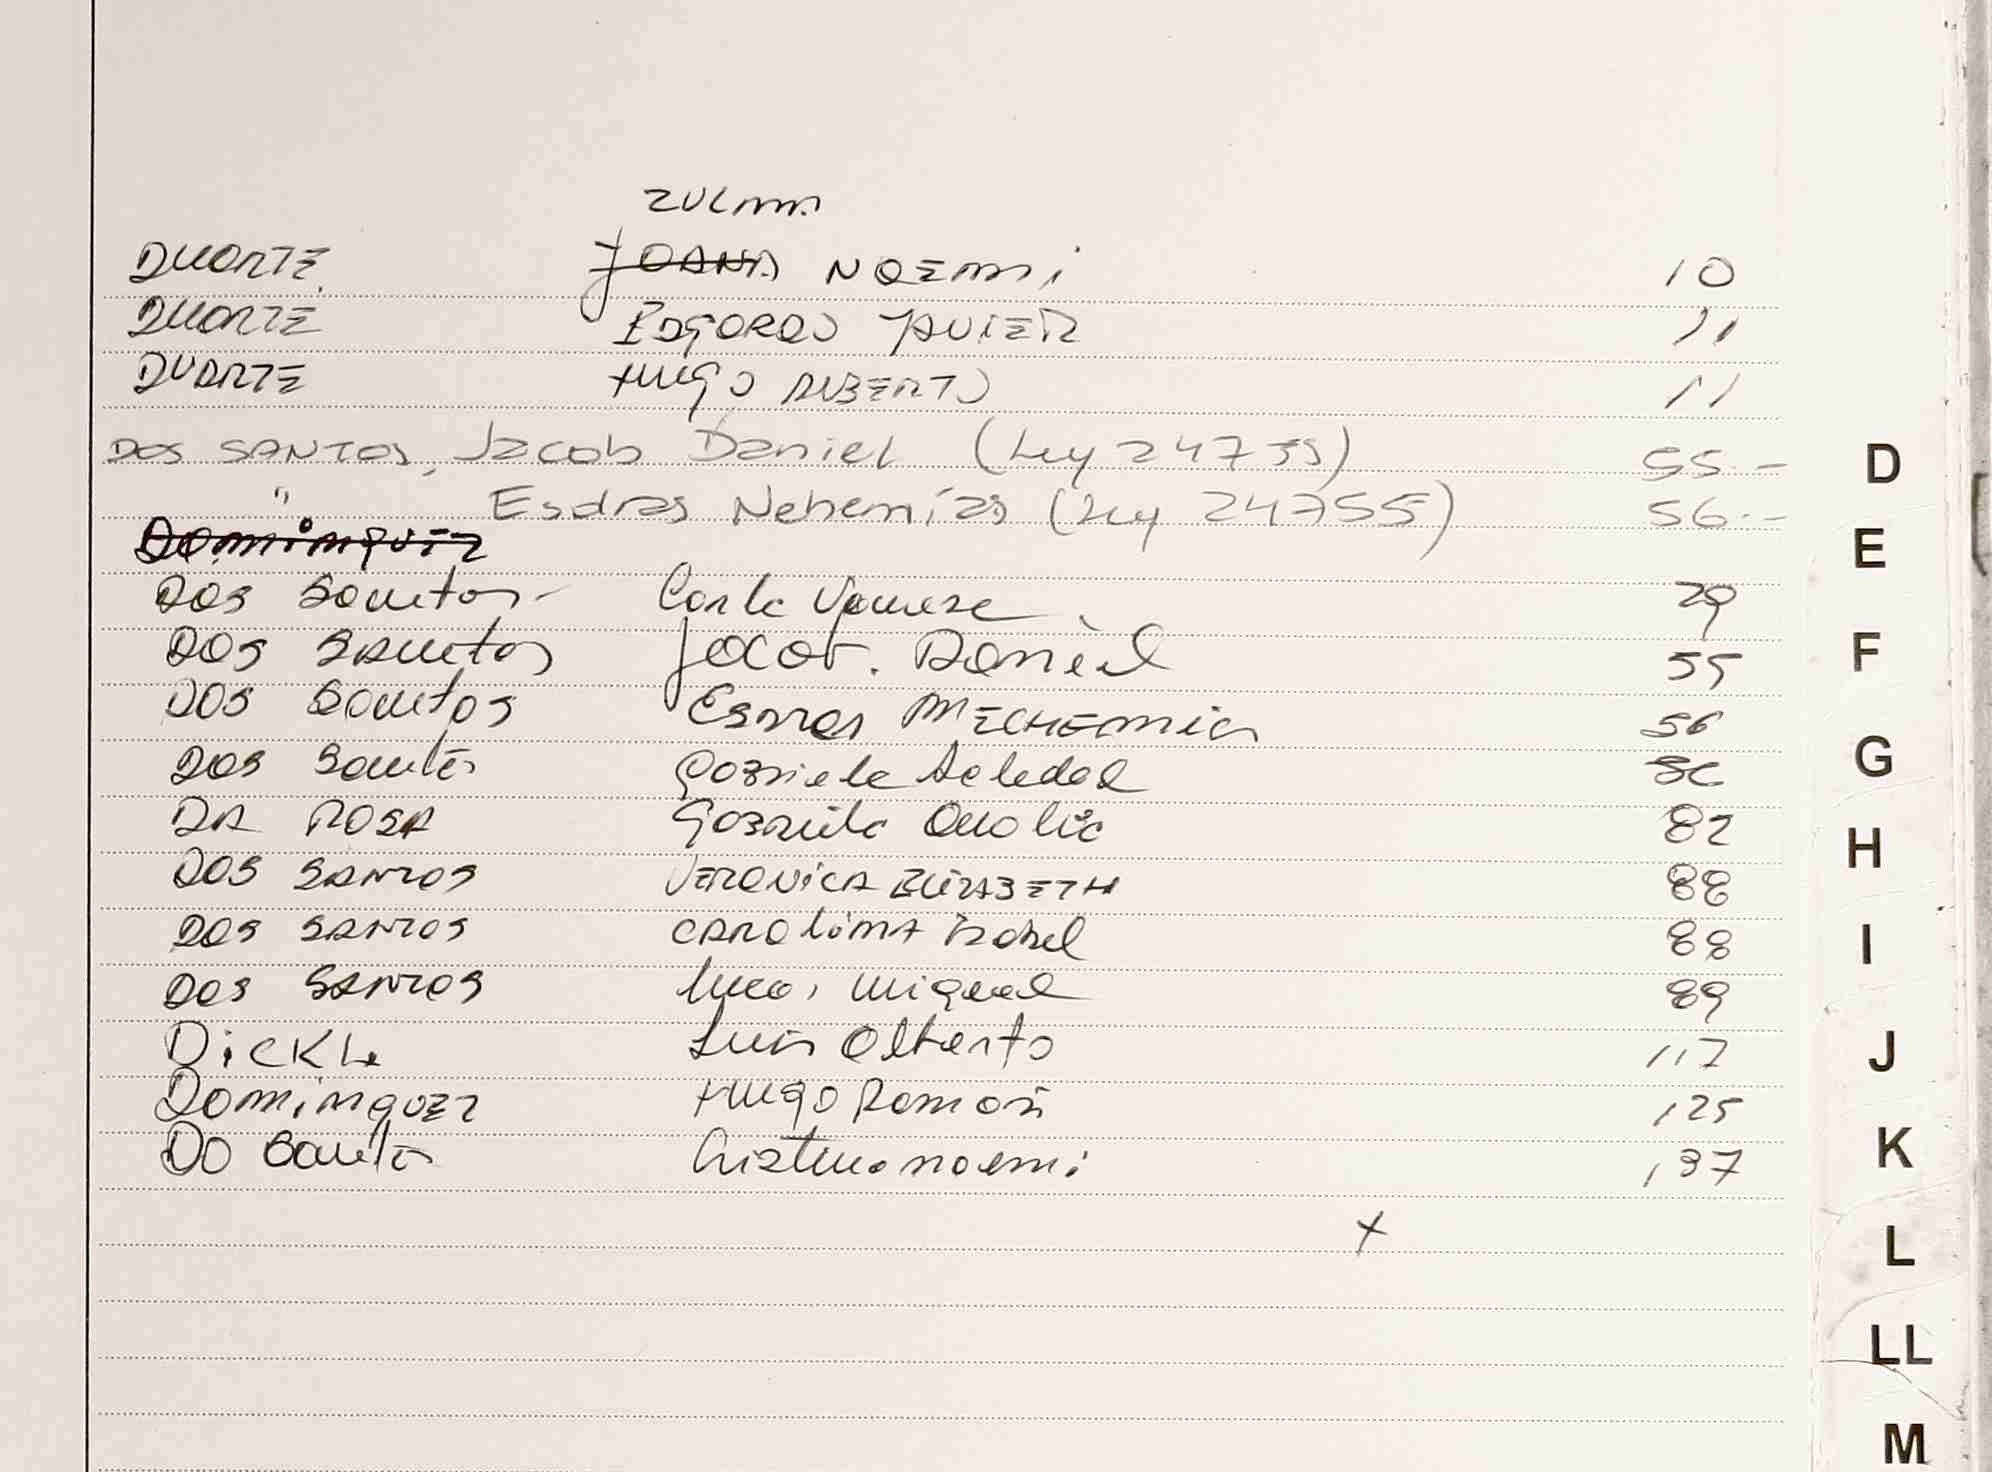 ZULMA
DUARTE JOANA NOEMI 10
DUARTE JAVIER 11
DUARTE HUGO ALBERTO 11
DOS SANTOS, Jacob Daniel (Ley 24755) 55.-
" Esdras Nehemías (Ley 24755) 56.-
DOMINGUEZ
DOS Santos- Carla 29
DOS SAntos Jacob. Daniel 55
DOS Santos Esdras 56
DOS Santos Gabriela Soledad
DA ROSA Gabriela 82
DOS SANTOS VERONICA ELIZABETH 88
DOS SANTOS CAROLINA Isabel 88
DOS SANTOS Miguel 89
Dickel Luis Alberto 117
DominguEz Hugo Ramon 125
DO Santos Noemi 137
x
D
E
F
G
H
I
J
K
L
LL
M